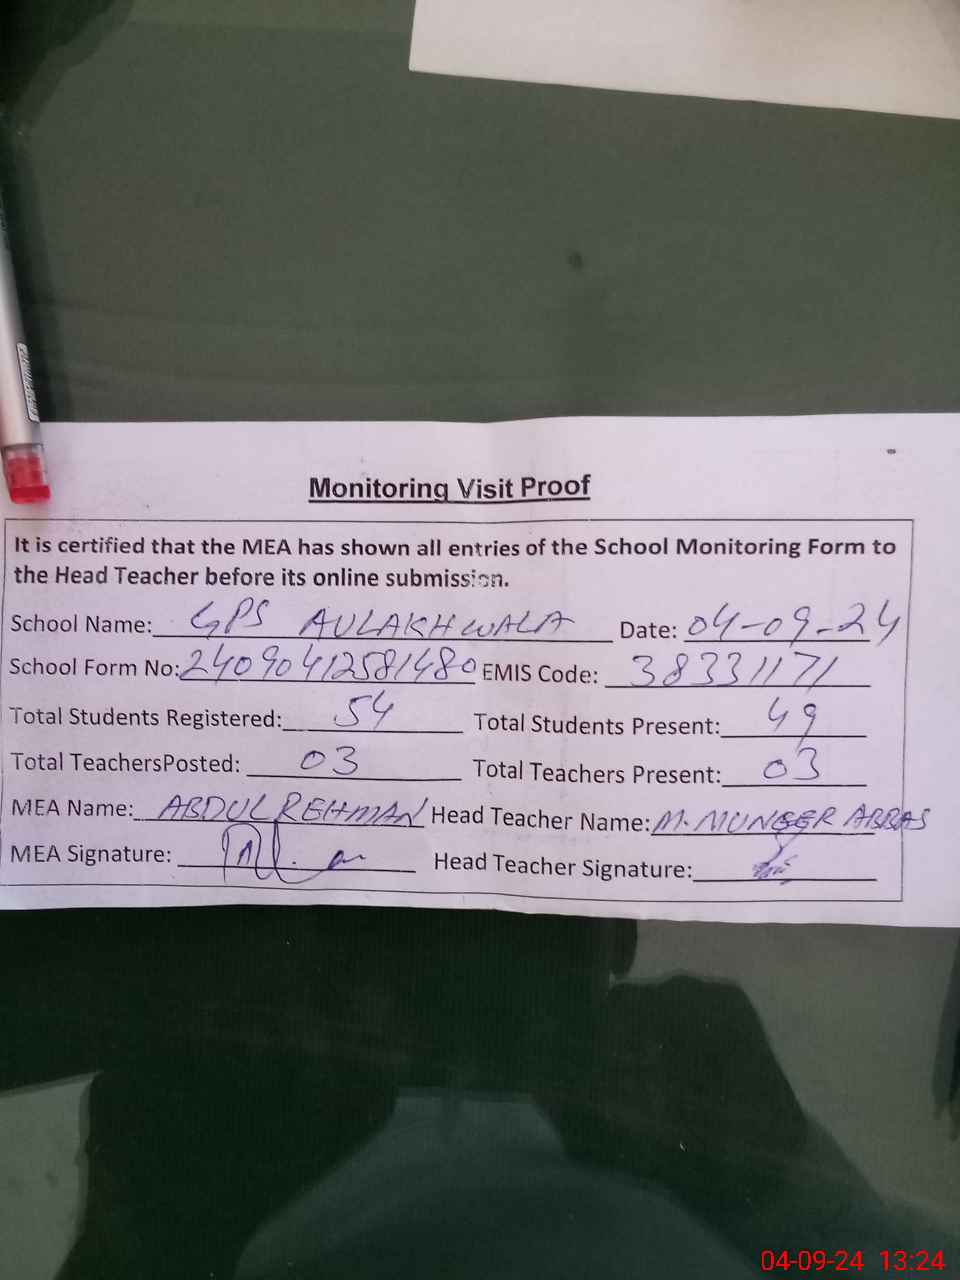 Monitoring Visit Proof
It is certified that the MEA has shown all entries of the School Monitoring Form to
the Head Teacher before its online submission.
School Name: GPS AULAKHWALA Date: 04-09-24
School Form No: 24090412581480 EMIS Code: 38331171
Total Students Registered: 54 Total Students Present: 49
Total TeachersPosted: 03 Total Teachers Present: 03
MEA Name: ABDUL REHMAN Head Teacher Name: M. MUNEER ABBAS
MEA Signature: Head Teacher Signature:
04-09-24 13:24